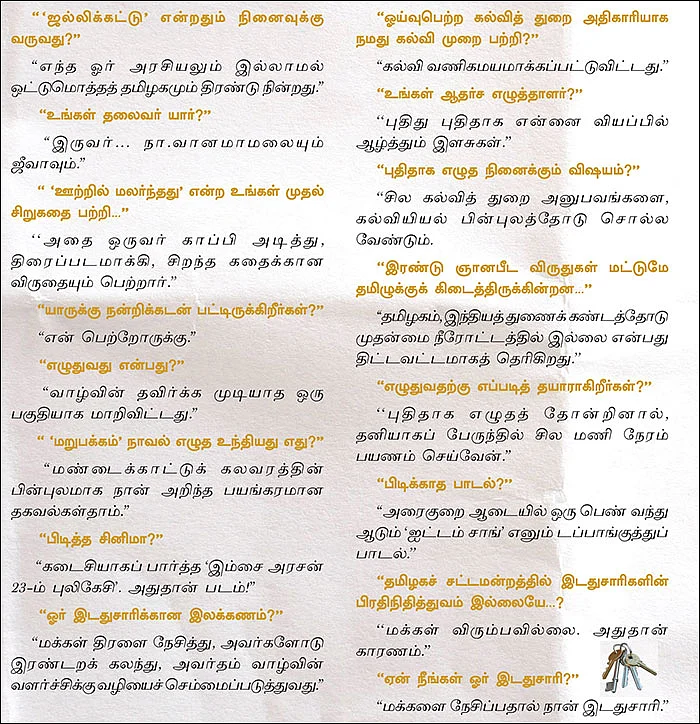 “‘ஜல்லிக்கட்டு’ என்றதும் நினைவுக்கு
வருவது?”
“எந்த ஓர் அரசியலும் இல்லாமல்
ஒட்டுமொத்தத் தமிழகமும் திரண்டு நின்றது.”
“உங்கள் தலைவர் யார்?”
“இருவர்... நா.வானமாமலையும்
ஜீவாவும்.”
“ ‘ஊற்றில் மலர்ந்தது’ என்ற உங்கள் முதல்
சிறுகதை பற்றி...”
‘‘அதை ஒருவர் காப்பி அடித்து,
திரைப்படமாக்கி, சிறந்த கதைக்கான
விருதையும் பெற்றார்.”
“யாருக்கு நன்றிக்கடன் பட்டிருக்கிறீர்கள்?”
“என் பெற்றோருக்கு.”
“எழுதுவது என்பது?”
“வாழ்வின் தவிர்க்க முடியாத ஒரு
பகுதியாக மாறிவிட்டது.”
“ ‘மறுபக்கம்’ நாவல் எழுத உந்தியது எது?”
“மண்டைக்காட்டுக் கலவரத்தின்
பின்புலமாக நான் அறிந்த பயங்கரமான
தகவல்கள்தாம்.”
“பிடித்த சினிமா?”
“கடைசியாகப் பார்த்த ‘இம்சை அரசன்
23-ம் புலிகேசி’. அதுதான் படம்!”
“ஓர் இடதுசாரிக்கான இலக்கணம்?”
“மக்கள் திரளை நேசித்து, அவர்களோடு
இரண்டறக் கலந்து, அவர்தம் வாழ்வின்
வளர்ச்சிக்கு வழியைச் செம்மைப்படுத்துவது.”
“ஓய்வுபெற்ற கல்வித் துறை அதிகாரியாக
நமது கல்வி முறை பற்றி?”
“கல்வி வணிகமயமாக்கப்பட்டுவிட்டது.”
“உங்கள் ஆதர்ச எழுத்தாளர்?”
‘‘புதிது புதிதாக என்னை வியப்பில்
ஆழ்த்தும் இளசுகள்.”
“புதிதாக எழுத நினைக்கும் விஷயம்?”
“சில கல்வித் துறை அனுபவங்களை,
கல்வியியல் பின்புலத்தோடு சொல்ல
வேண்டும்.
“இரண்டு ஞானபீட விருதுகள் மட்டுமே
தமிழுக்குக் கிடைத்திருக்கின்றன...”
“தமிழகம், இந்தியத் துணைக் கண்டத்தோடு
முதன்மை நீரோட்டத்தில் இல்லை என்பது
திட்டவட்டமாகத் தெரிகிறது.”
“எழுதுவதற்கு எப்படித் தயாராகிறீர்கள்?”
‘‘புதிதாக எழுதத் தோன்றினால்,
தனியாகப் பேருந்தில் சில மணி நேரம்
பயணம் செய்வேன்.”
“பிடிக்காத பாடல்?”
“அரைகுறை ஆடையில் ஒரு பெண் வந்து
ஆடும் ‘ஐட்டம் சாங்’ எனும் டப்பாங்குத்துப்
பாடல்.”
“தமிழகச் சட்டமன்றத்தில் இடதுசாரிகளின்
பிரதிநிதித்துவம் இல்லையே...?
‘‘மக்கள் விரும்பவில்லை. அதுதான்
காரணம்.”
“ஏன் நீங்கள் ஓர் இடதுசாரி?”
“மக்களை நேசிப்பதால் நான் இடதுசாரி.”